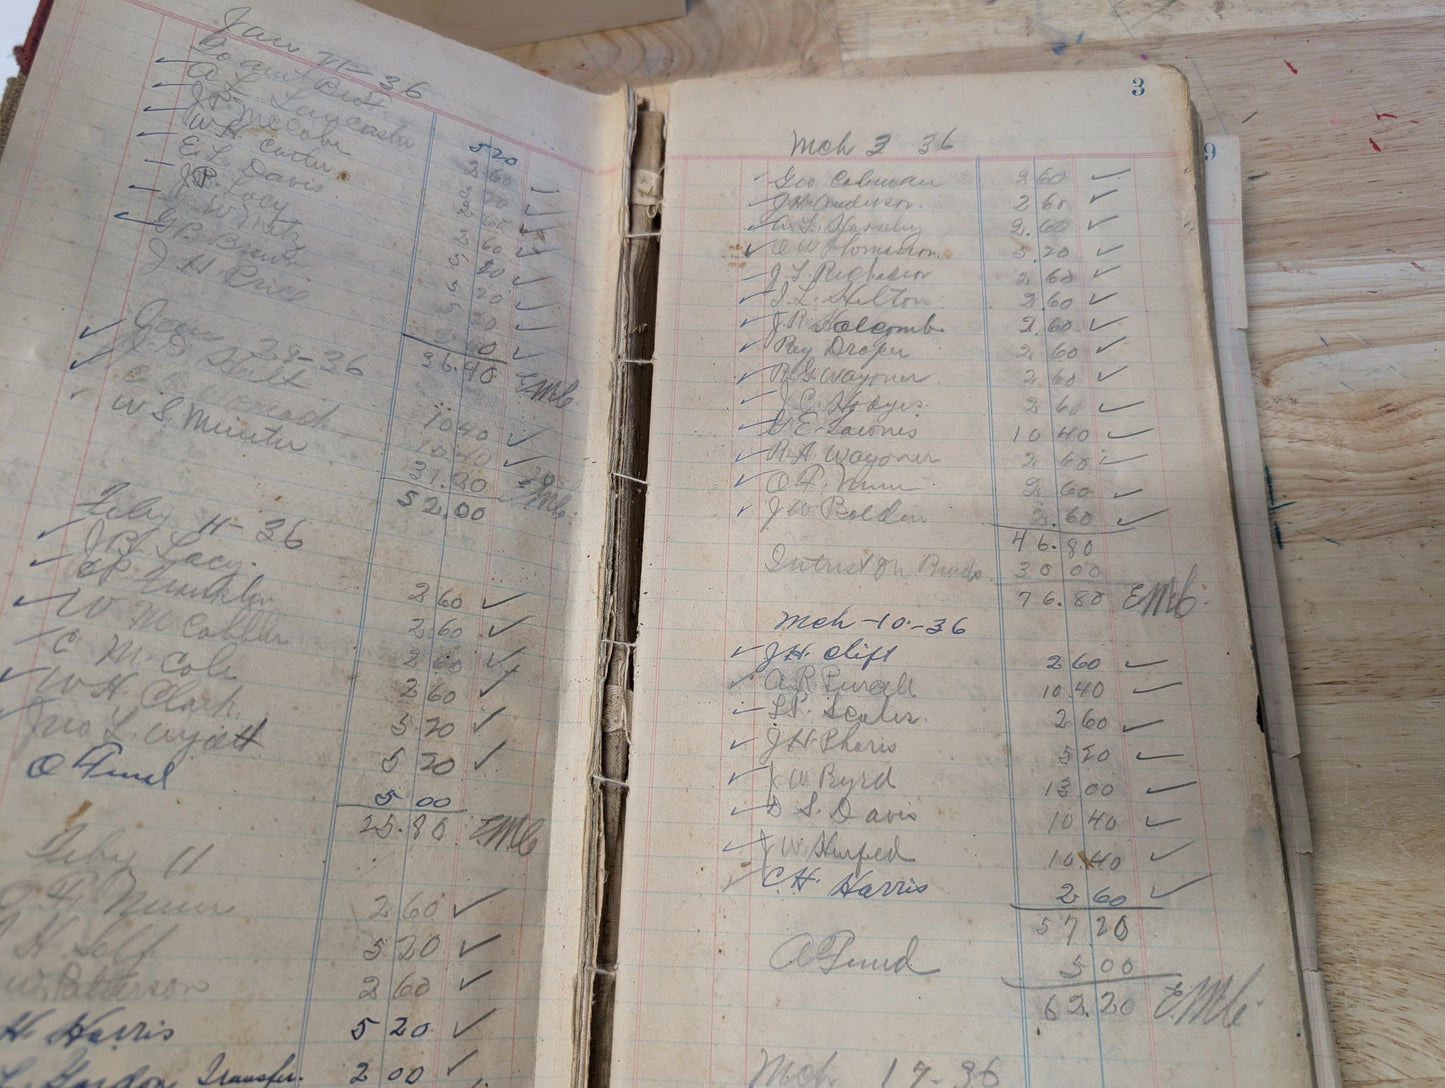 Jan 21-36
Bros. 5 20
A L Lancaster 2 60 ✓
J P McCabe
W H Carter 2 60
E L Davis 2 60 ✓
J P. Lacy 5 20 ✓
J W 5 20 ✓
G B Brown 5 20 ✓
J H Price 2 60 ✓
36.40 EMC.
Jan 28-36
J D. Hilt 10 40 ✓
10 40 ✓
W S. Minter 31.20
52.00 EMC.
Feby 11-36
J P. Lacy. 2 60 ✓
C P. Franklin 2 60 ✓
W M Cobler 2 60 ✓
C M. Cole 2 60 ✓
W H. Clark 5 20 ✓
Jno L. Wyatt 5 20 ✓
O Fund 5 00
25.80 EMC
Feby 11
O F. Nunn 2 60 ✓
H Self 5 20 ✓
Patterson 2 60 ✓
H. Harris 5 20 ✓
L. Gordon Transfer. 2 00 ✓
3
9
Mch 3 36
Geo Coleman 2 60 ✓
J H Anderson. 2 60 ✓
A L 2.60 ✓
O W Thomasson 5.20 ✓
J L 2 60 ✓
S. L. Hilton 2 60 ✓
J R Holcomb 2 60 ✓
Rey Draper 2 60 ✓
R G Wagoner 2 60 ✓
J C. 2 60 ✓
G E. 10 40 ✓
R A Wagoner 2 60 ✓
O F. Nunn 2 60 ✓
J W Boldin 2.60 ✓
46.80
Interest On Bonds 30 00
76.80 EMC.
Mch-10-36
J H. Clift 2 60 ✓
A R Purcell 10.40 ✓
S P. Scales. 2 60 ✓
J H Pharis 5 20 ✓
J W Byrd 13 00 ✓
D S. Davis 10 40 ✓
J W 10 40 ✓
C. H. Harris 2 60 ✓
57 20
O Fund 5 00
62.20 E.M.C.
Mch 17-36